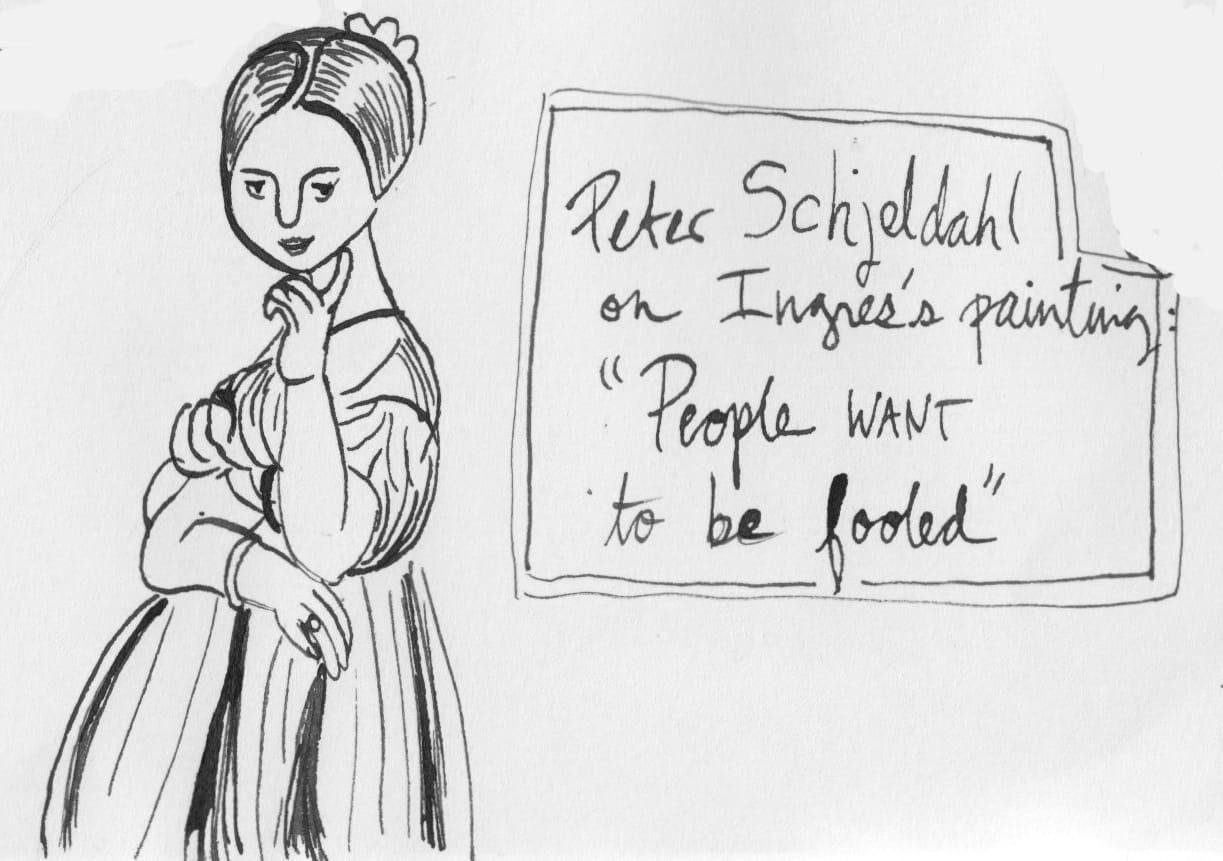 Peter Schjeldahl
on Ingres's painting:
"People WANT
to be fooled"